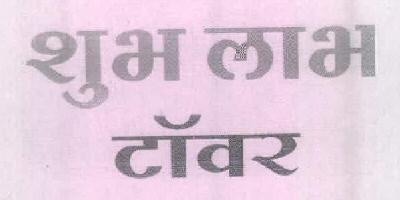 शुभ लाभ
टॉवर